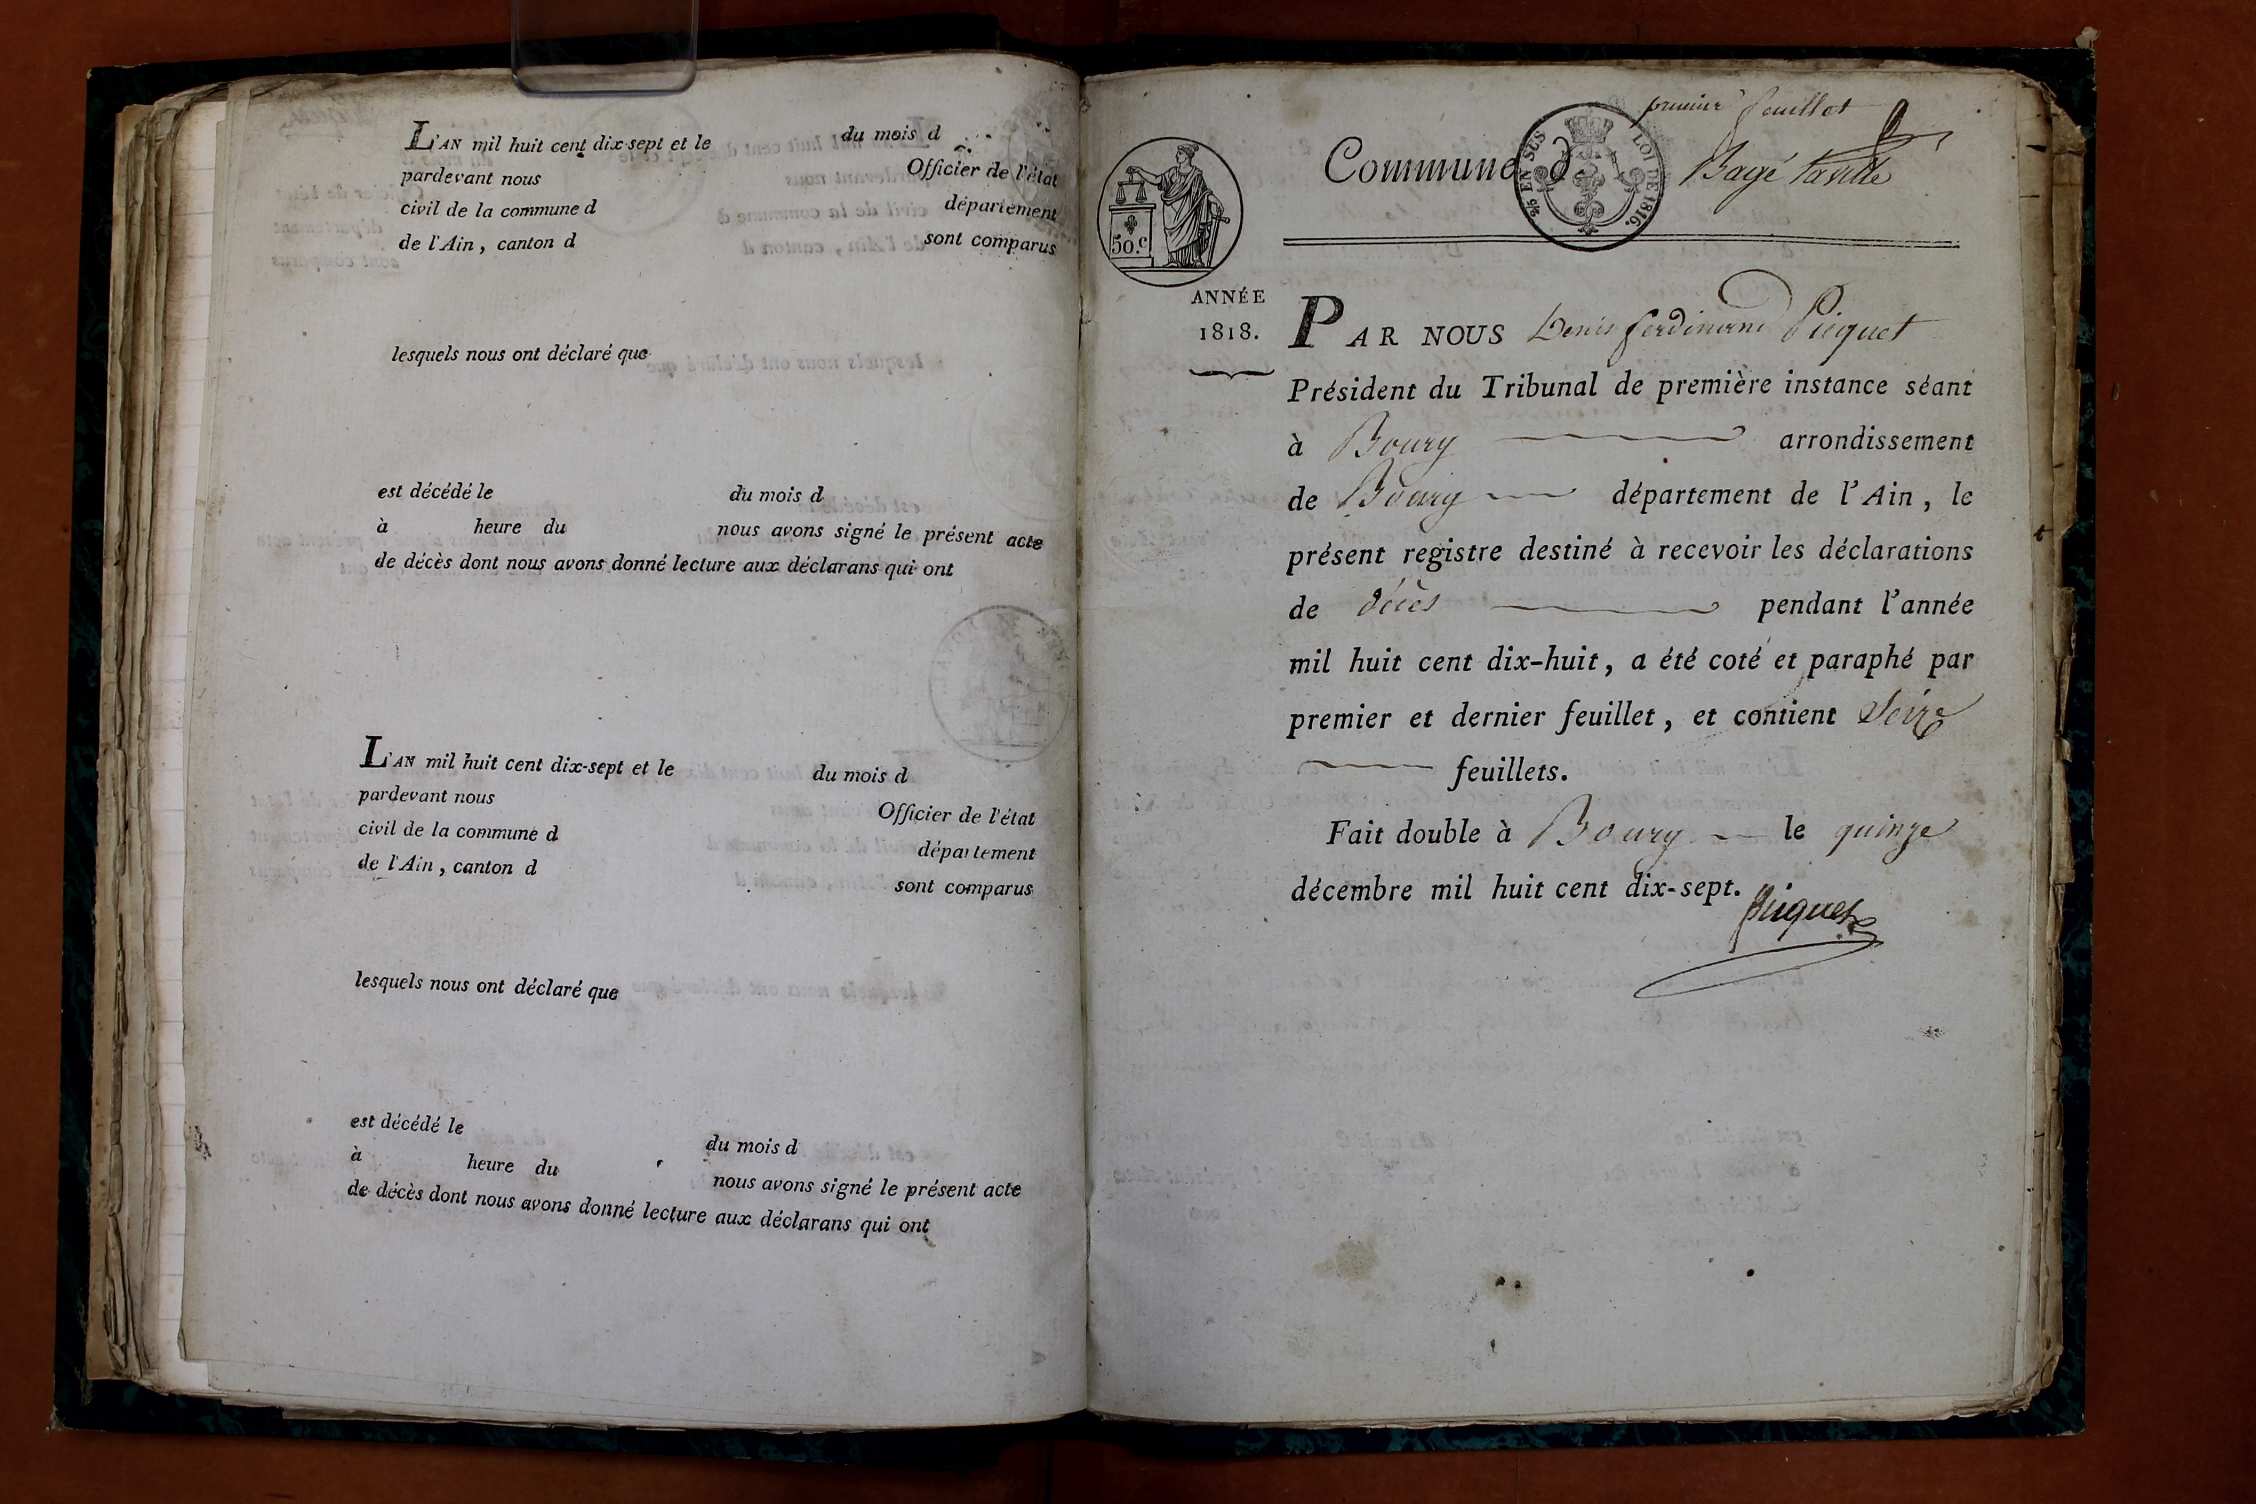 L'AN mil huit cent dix-sept et le du mois d
pardevant nous Officier de l'état
civil de la commune d département
de l'Ain, canton d sont comparus
lesquels nous ont déclaré que
est décédé le du mois d
à heure du nous avons signé le présent acte
de décès dont nous avons donné lecture aux déclarans qui ont
L'AN mil huit cent dix-sept et le du mois d
pardevant nous Officier de l'état
civil de la commune d département
de l'Ain, canton d sont comparus
lesquels nous ont déclaré que
est décédé le du mois d
à heure du nous avons signé le présent acte
de décès dont nous avons donné lecture aux déclarans qui ont
premier feuillet
Commune d Bagé la ville
5/6 EN SUS LOI DE 1816.
50.c
ANNÉE
1818.
PAR NOUS Denis ferdinand Piquet
Président du Tribunal de première instance séant
à Bourg arrondissement
de Bourg département de l'Ain, le
présent registre destiné à recevoir les déclarations
de décès pendant l'année
mil huit cent dix-huit, a été coté et paraphé par
premier et dernier feuillet, et contient Seize
feuillets.
Fait double à Bourg le quinze
décembre mil huit cent dix-sept.
Piquet